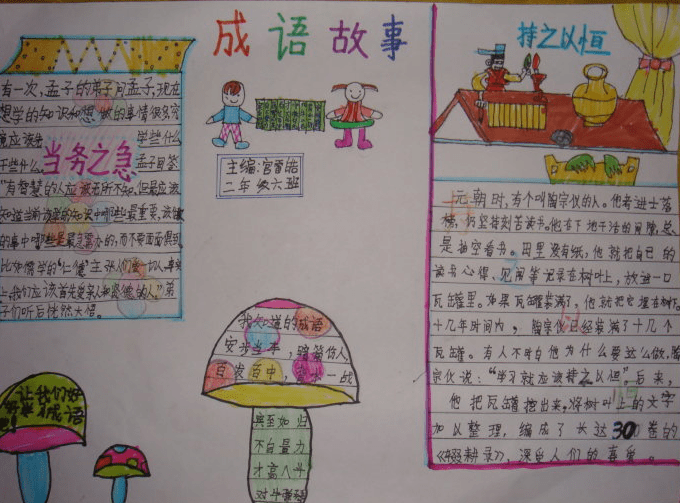 成语故事
主编：宫晋皓
二年级六班
当务之急
有一次，孟子的弟子问孟子，现在
想学的知识和想做的事情很多，究
竟应该先 学些什么
干些什么。 孟子回答
"有智慧的人应该无所不知，但最应该
知道当前该学的知识中哪些最重要，该做
的事中哪些是最急要办的，而不要面面俱到
子们听后恍然大悟。
让我们好
成语
我知道的成语
安步当车，骑
百发百中，一战
宾至如归
不自量力
才高八斗
持之以恒
元朝时，有个叫陶宗仪的人。他考进士落
榜，仍坚持刻苦读书。他在下地干活的间隙，总
是抽空看书。田里没有纸，他就把自己的
读书心得、见闻等记录在树叶上，放进一口
瓦罐里。如果瓦罐装满了，他就把它埋在树下。
十几年时间内，陶宗仪已经装满了十几个
瓦罐。有人不明白他为什么要这么做，陶
宗仪说："学习就应该持之以恒"。后来，
他把瓦罐挖出来，将树叶上的文字
加以整理，编成了长达30卷的
《辍耕录》，深受人们的喜爱。